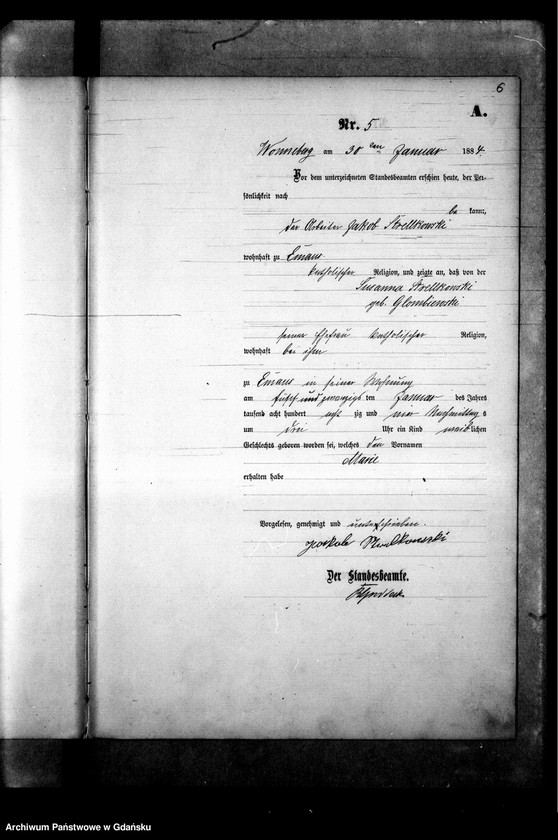 6
A.
Nr. 5
Wonneberg am 30 ten Januar 1884.
Vor dem unterzeichneten Standesbeamten erschien heute, der Per-
sönlichkeit nach
be kannt,
der Arbeiter Jakob Strellkowski
wohnhaft zu Emaus
katholischer Religion, und zeigte an, daß von der
Susanna Strellkowski
geb. Glombienski
seiner Ehefrau katholischer Religion,
wohnhaft bei ihm
zu Emaus in seiner Wohnung
am fünf und zwanzigs ten Januar des Jahres
tausend acht hundert acht zig und vier Nachmittag s
um drei Uhr ein Kind weib lichen
Geschlechts geboren worden sei, welches den Vornamen
Marie
erhalten habe
Vorgelesen, genehmigt und unterschrieben.
Der Standesbeamte.
Archiwum Państwowe w Gdańsku